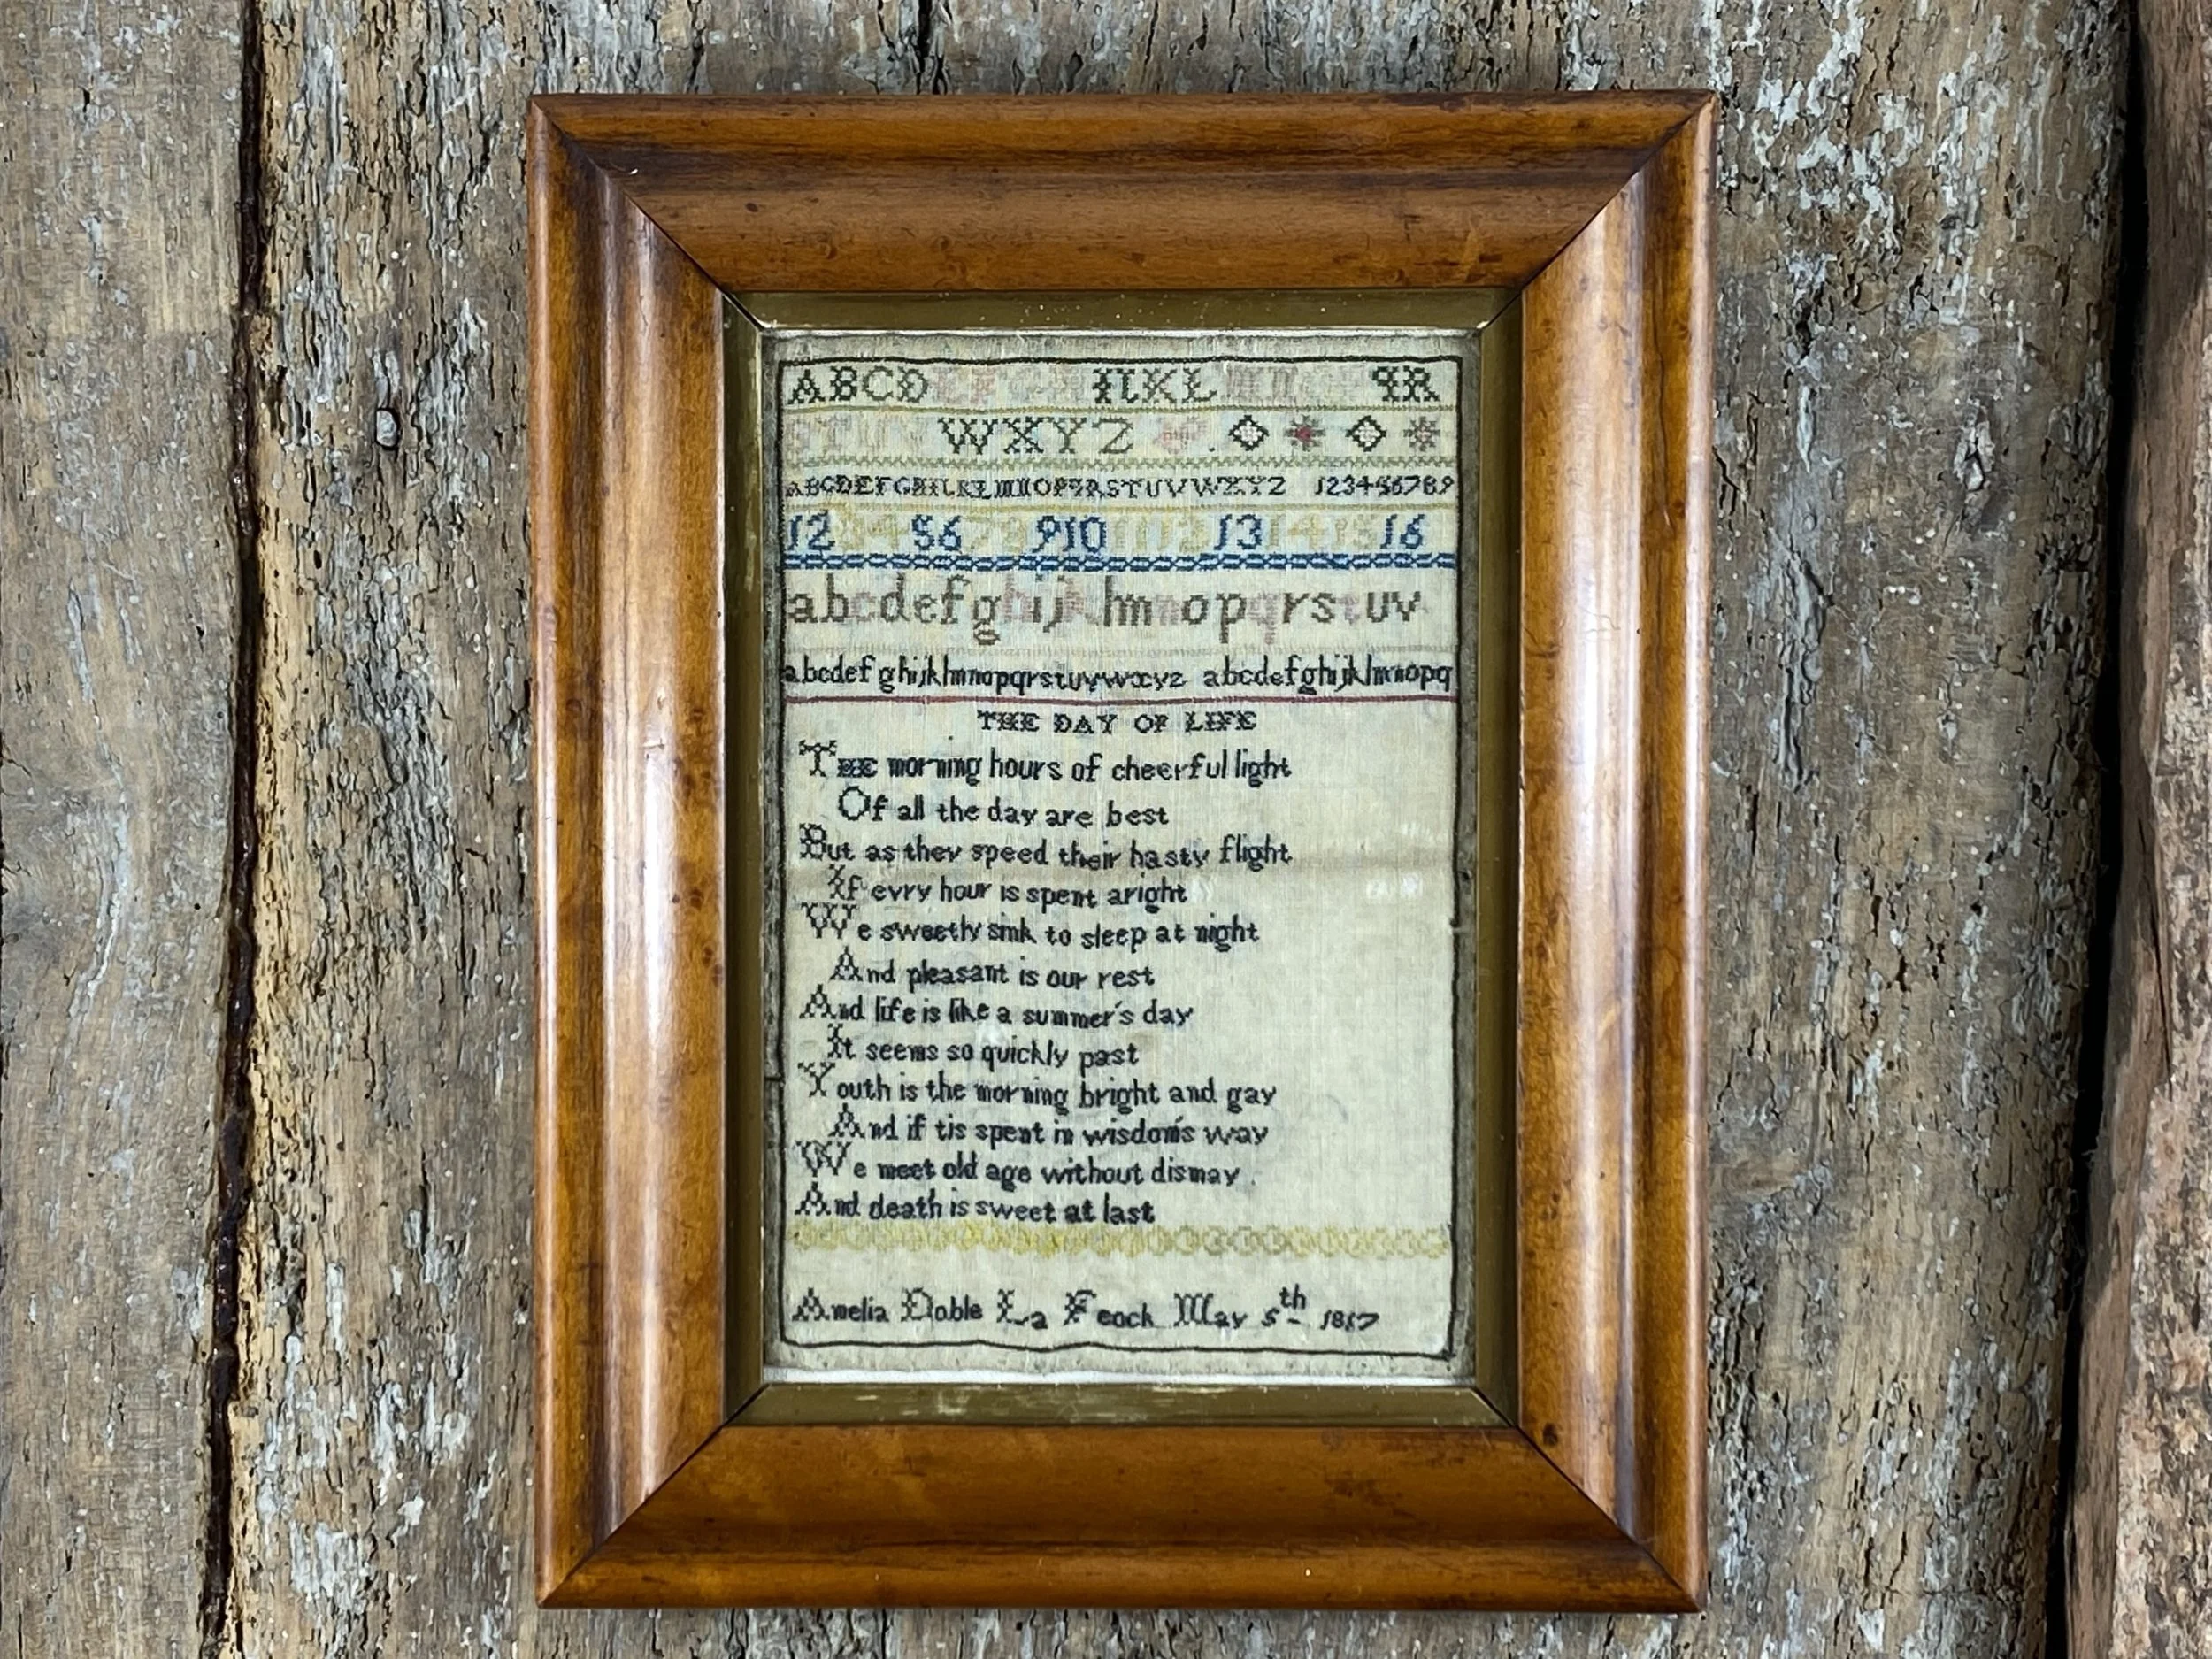 ABCDEFGHIKLMNOPQR
STUVWXYZ
ABCDEFGHIKLMNOPQRSTUVWXYZ 123456789
12345678910111213141516
abcdefghijklmnopqrstuv
abcdefghijklmnopqrstuvwxyz abcdefghijklmnopq
THE DAY OF LIFE
THE morning hours of cheerful light
Of all the day are best
But as they speed their hasty flight
If evry hour is spent aright
We sweetly sink to sleep at night
And pleasant is our rest
And life is like a summer's day
It seems so quickly past
Youth is the morning bright and gay
And if tis spent in wisdom's way
We meet old age without dismay
And death is sweet at last
Amelia Doble La Feock May 5th 1817